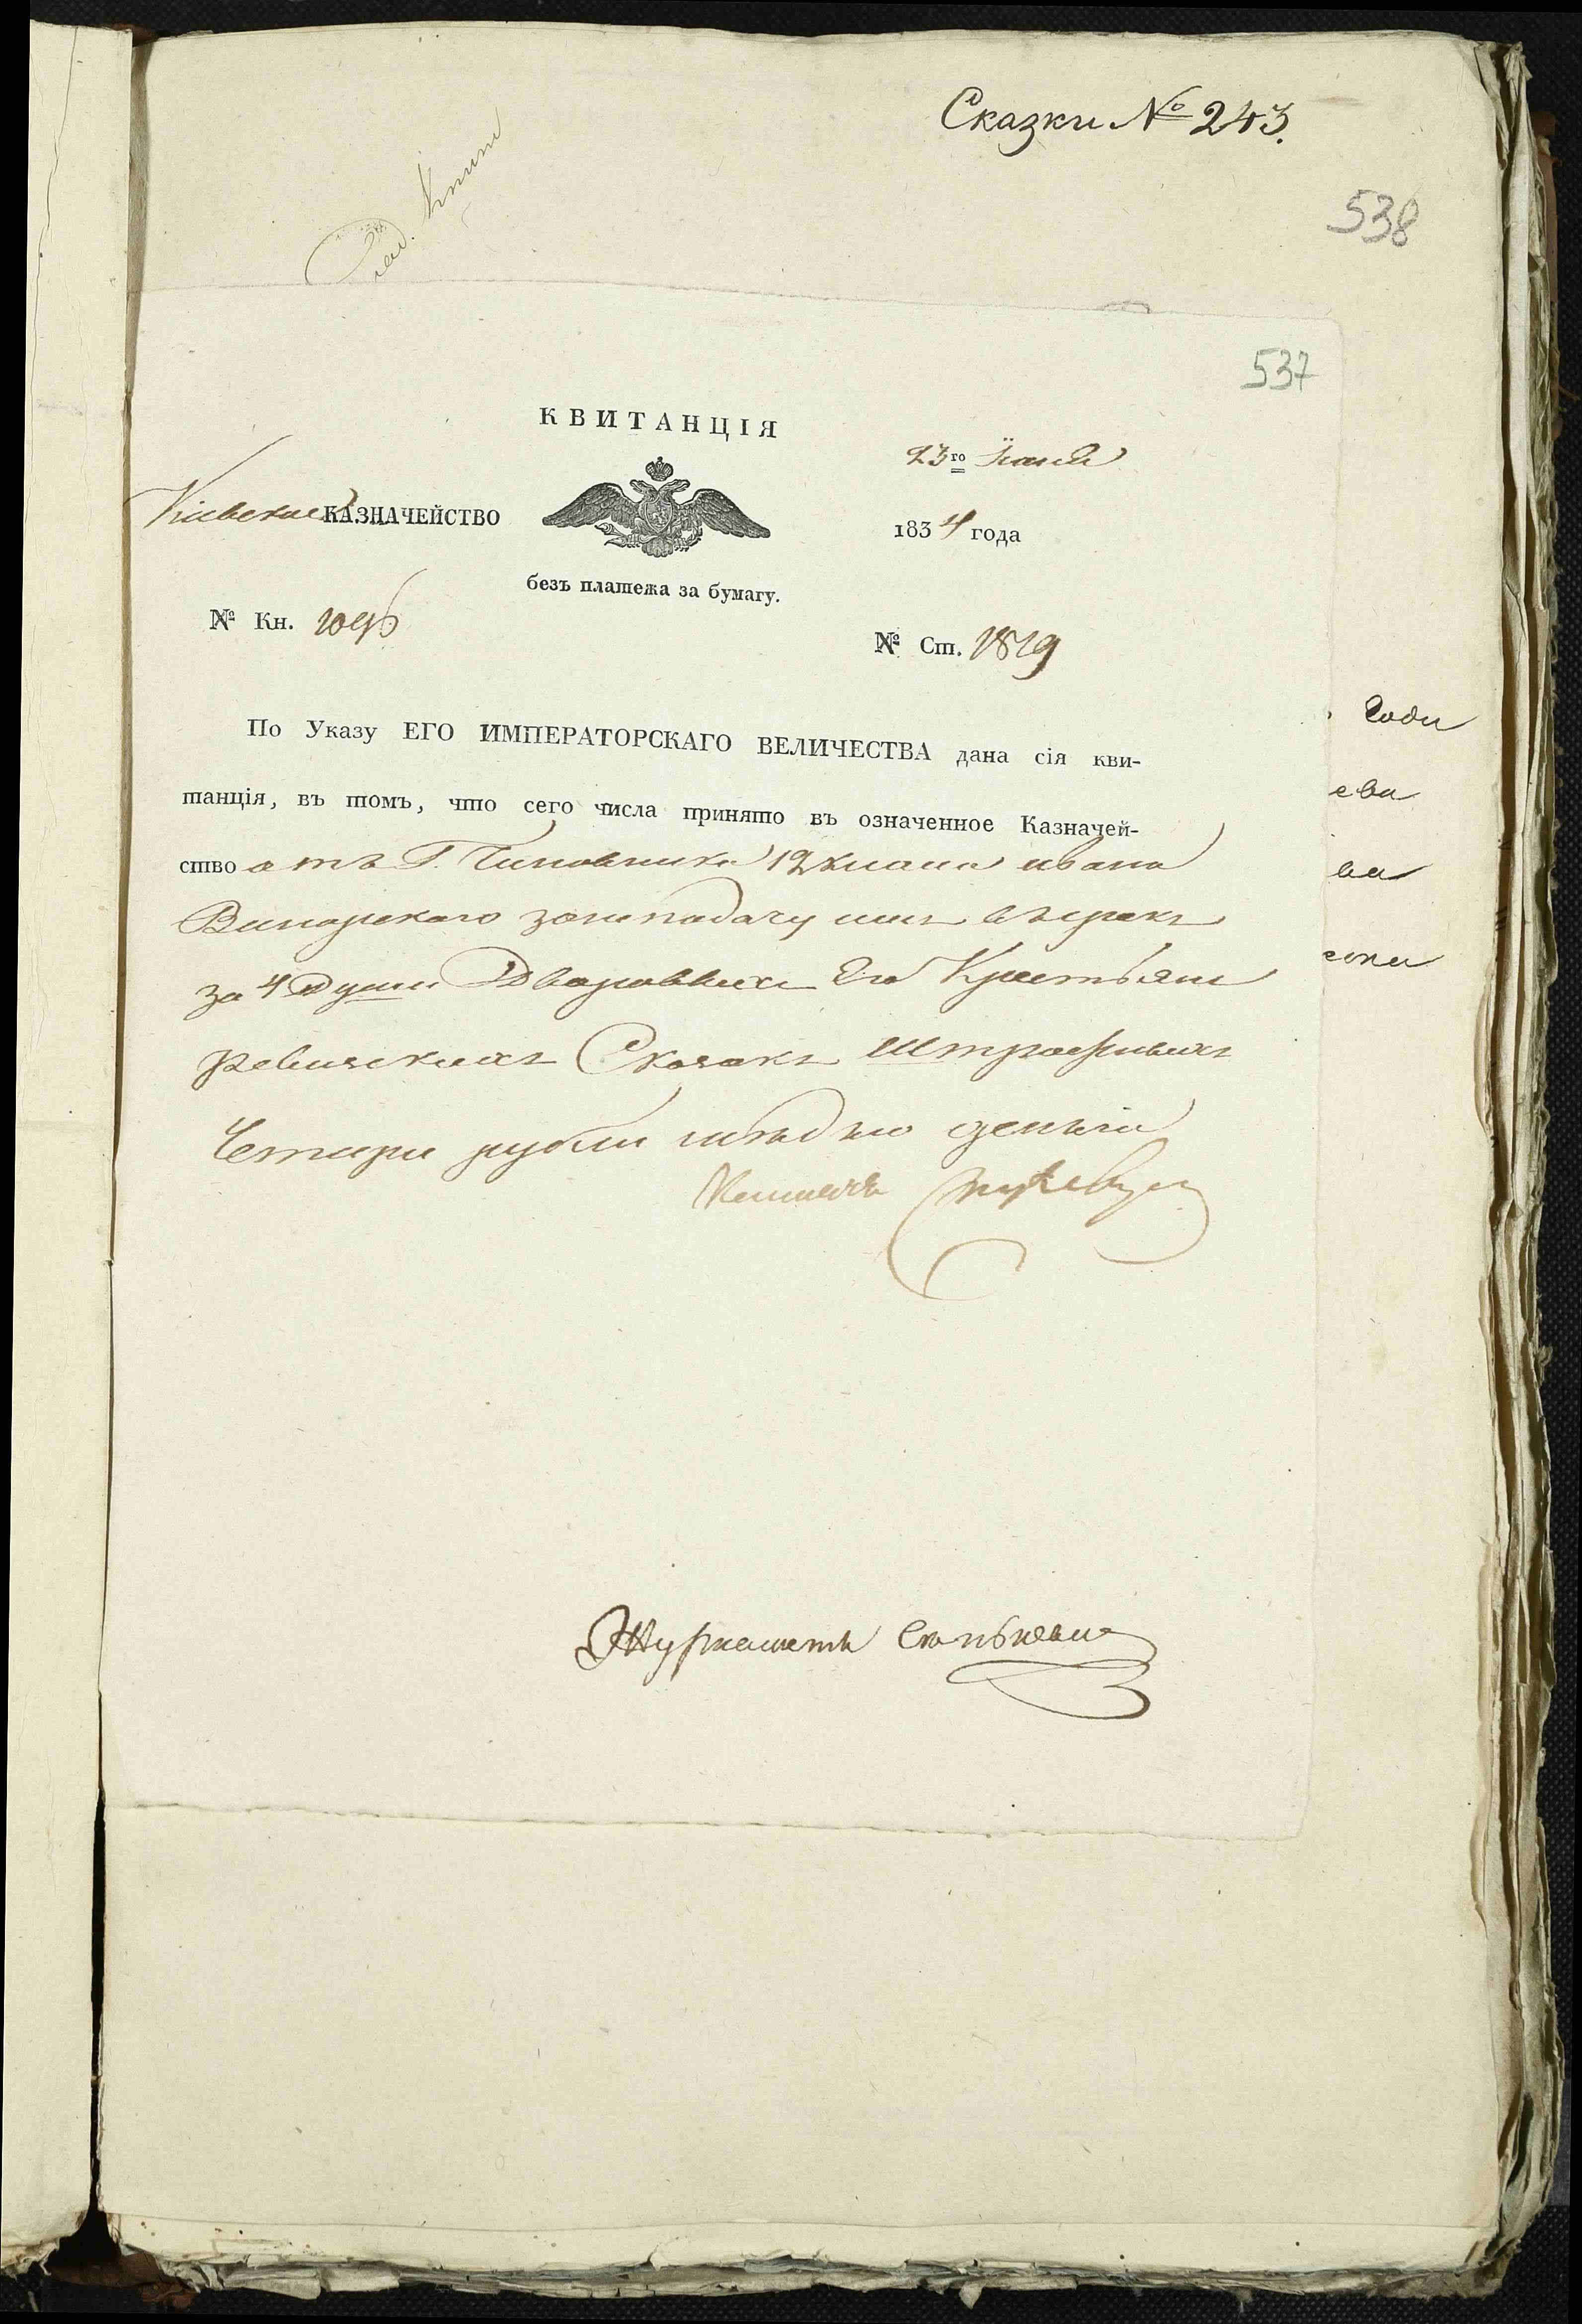 Сказки № 243.
538
537
КВИТАНЦІЯ
23го Іюня
Кіевское КАЗНАЧЕЙСТВО
1834 года
безъ платежа за бумагу.
№ Кн. 1096
№ Ст. 1819
По Указу ЕГО ИМПЕРАТОРСКАГО ВЕЛИЧЕСТВА дана сія кви-
танція, въ томъ, что сего числа принято въ означенное Казначей-
ство отъ Г. Чиновника 12 класа ивана
за неподачу имъ въ срокъ
за 4 Души Дворовыхъ Его Крестьянъ
Ревизскихъ Сказокъ Штрафныхъ
Четыри рубли мѣдью
Журналистъ